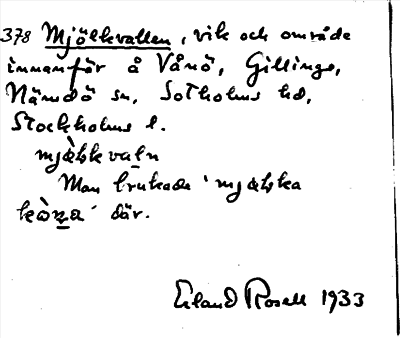 378 Mjölkvallen, vik och område
innanför å Vånö, Gillinge,
Nämdö sn, Sotholms hd,
Stockholms l.
mjäłkvaln
Man brukade 'mjäłka
kòṟa' där.
Erland Rosell 1933